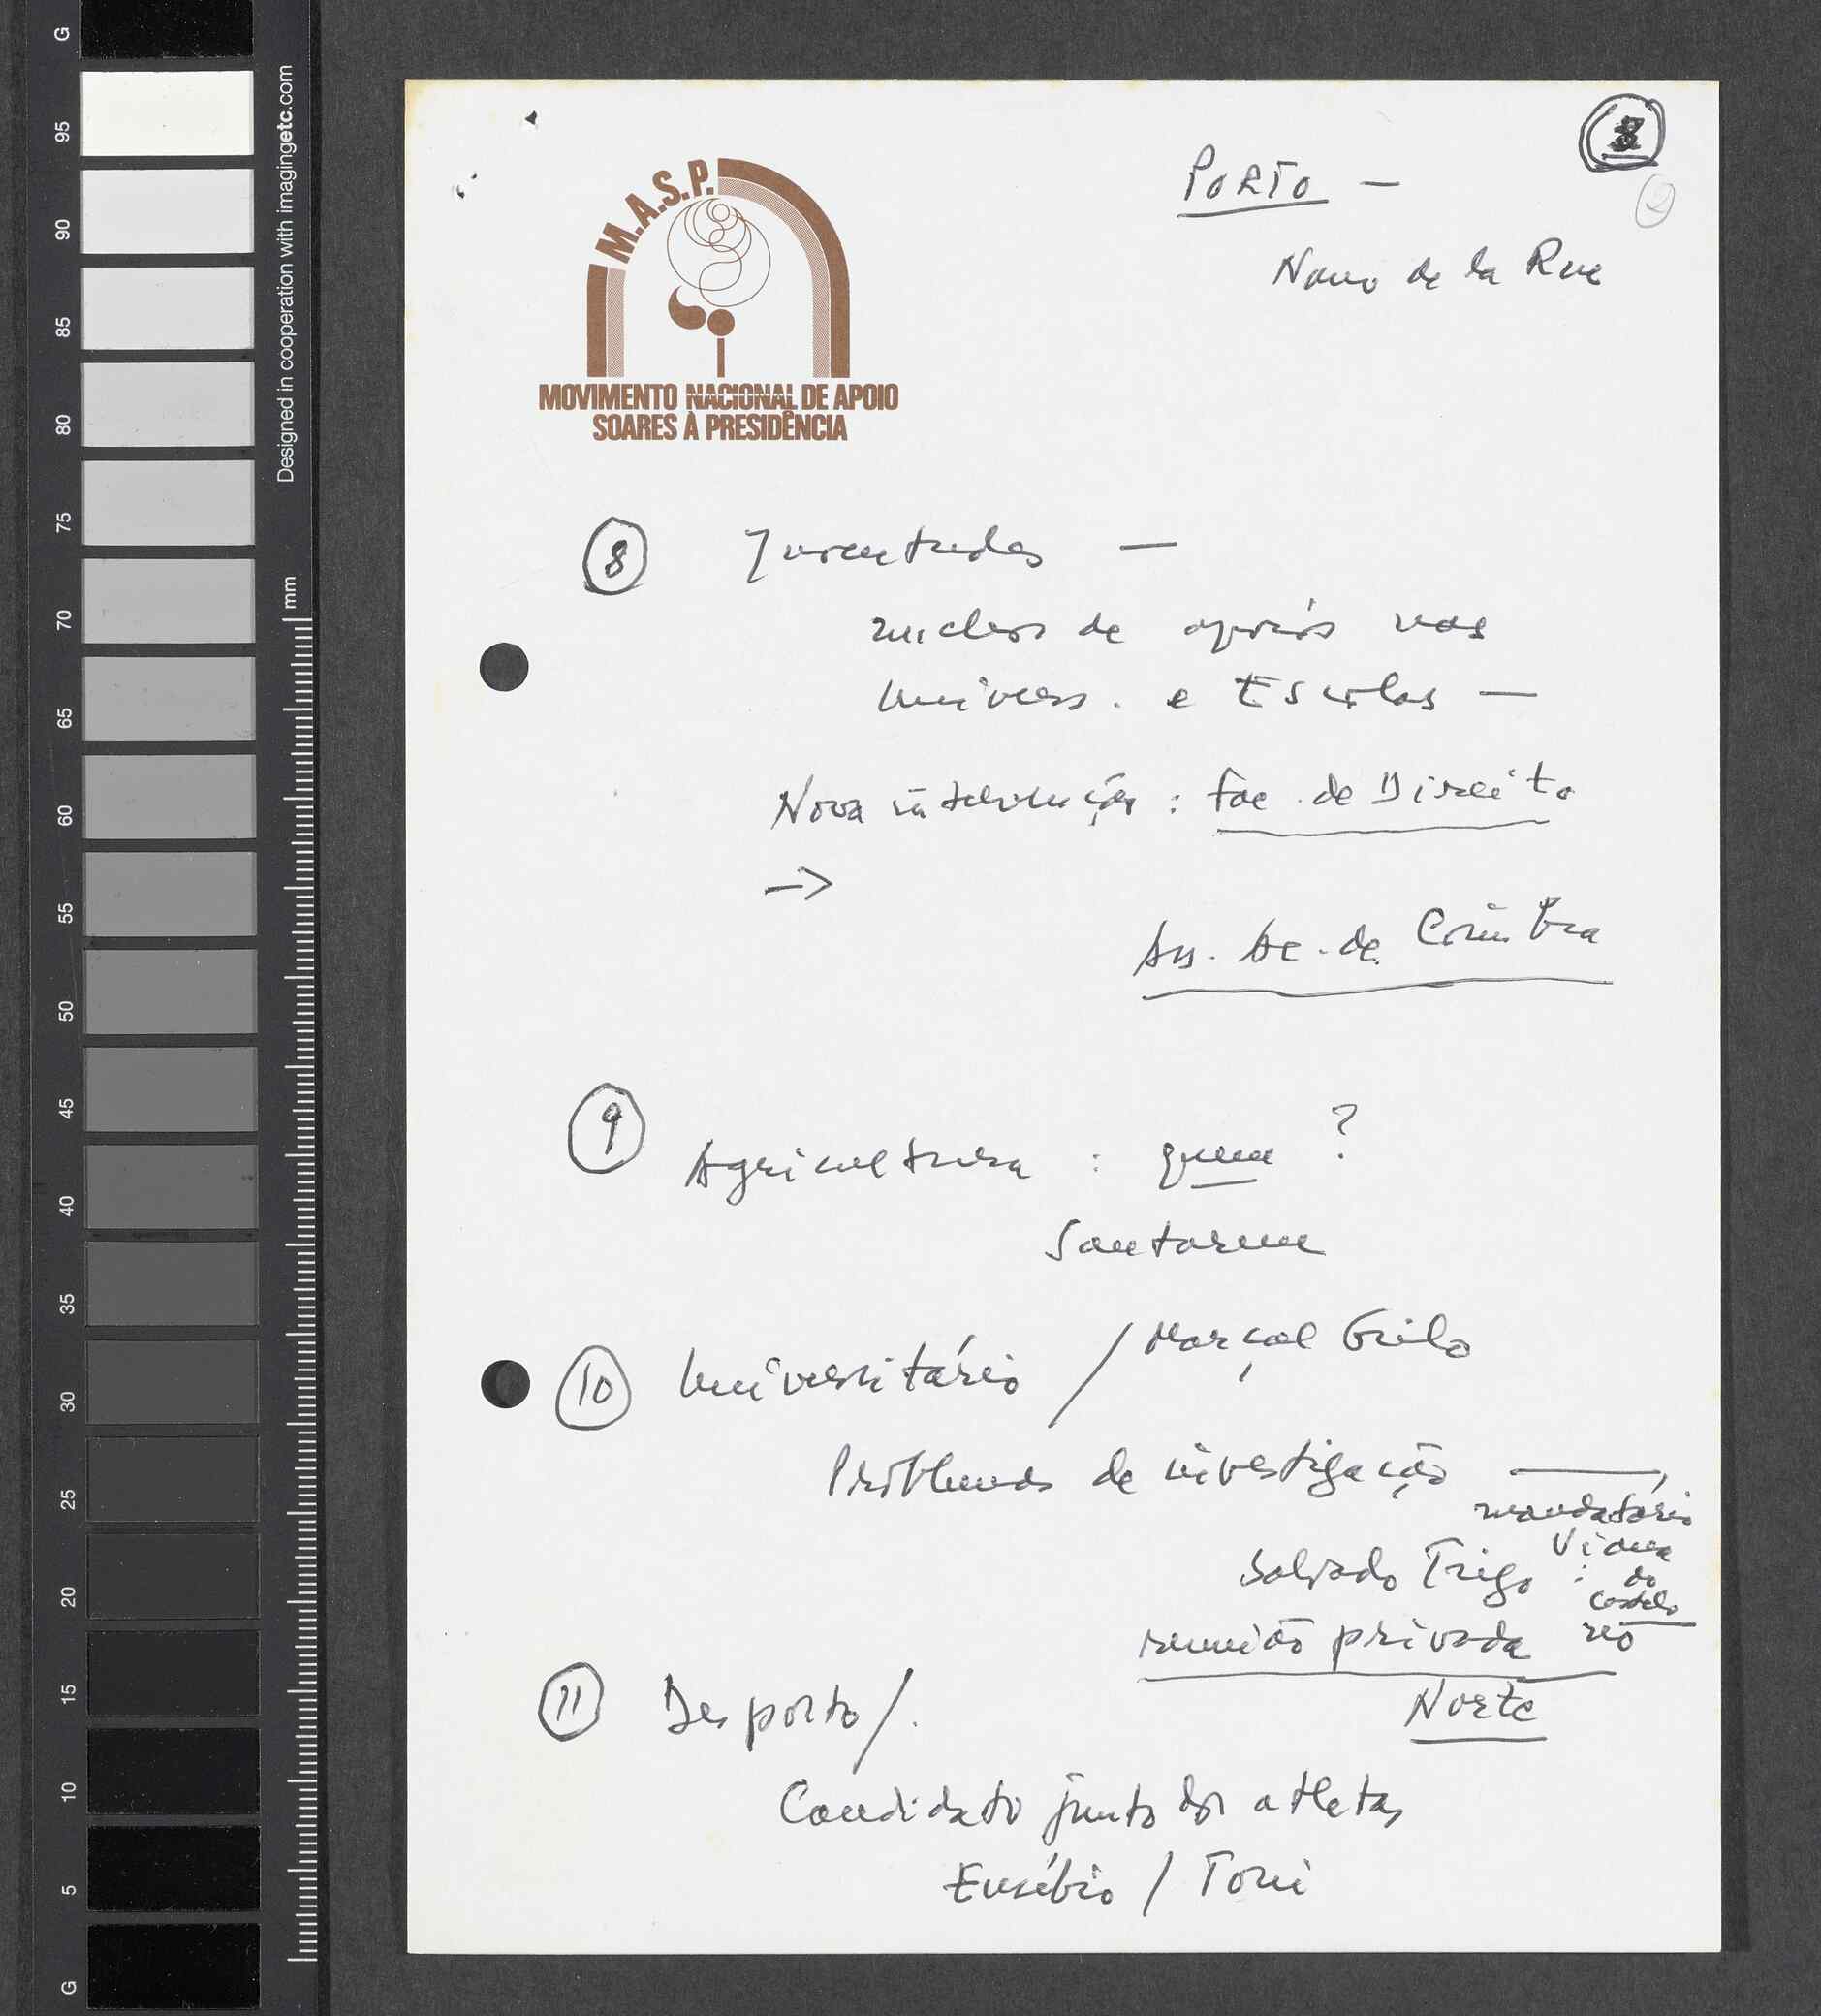 G
95
90
85
80
75
70
65
60
55
50
45
40
35
30
25
20
15
10
5
G
Designed in cooperation with imagingetc.com
mm
M.A.S.P.
MOVIMENTO NACIONAL DE APOIO
SOARES À PRESIDÊNCIA
3
2
PORTO —
de la Rue
8 Juventudes —
nucleos de apoios nas
Univers. e Escolas —
Nova intervenção : Fac. de Direito
→
Ass. Ac. de Coimbra
9 Agricultura : quem ?
Santarem
10 Universitário / Marçal Grilo
Problemas de investigação —
mandatário
Viana
do
Castelo
Salvado Trigo :
reunião privada no
Norte
11 Desporto /.
Candidato junto dos atletas
Eusébio / Toni